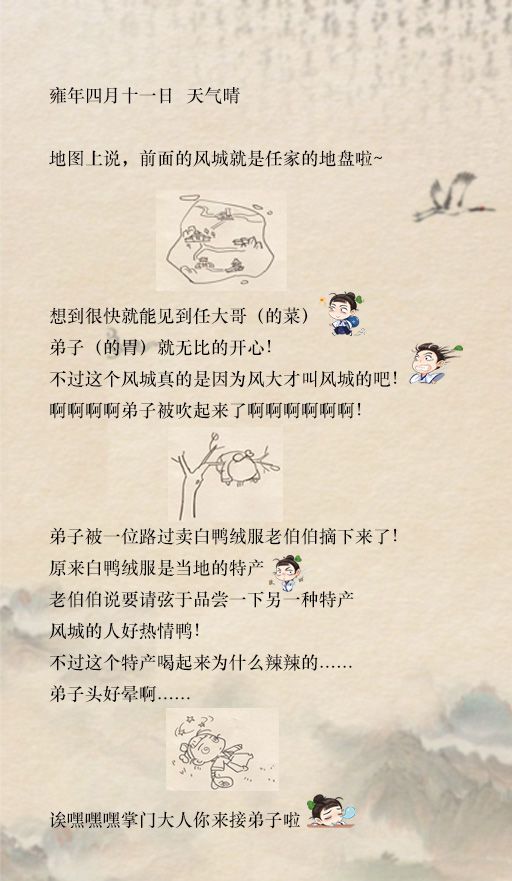 雍年四月十一日 天气晴
地图上说，前面的风城就是任家的地盘啦~
想到很快就能见到任大哥（的菜）
弟子（的胃）就无比的开心！
不过这个风城真的是因为风大才叫风城的吧！
啊啊啊啊弟子被吹起来了啊啊啊啊啊啊！
弟子被一位路过卖白鸭绒服老伯伯摘下来了！
原来白鸭绒服是当地的特产
老伯伯说要请弦于品尝一下另一种特产
风城的人好热情鸭！
不过这个特产喝起来为什么辣辣的……
弟子头好晕啊……
诶嘿嘿嘿掌门大人你来接弟子啦